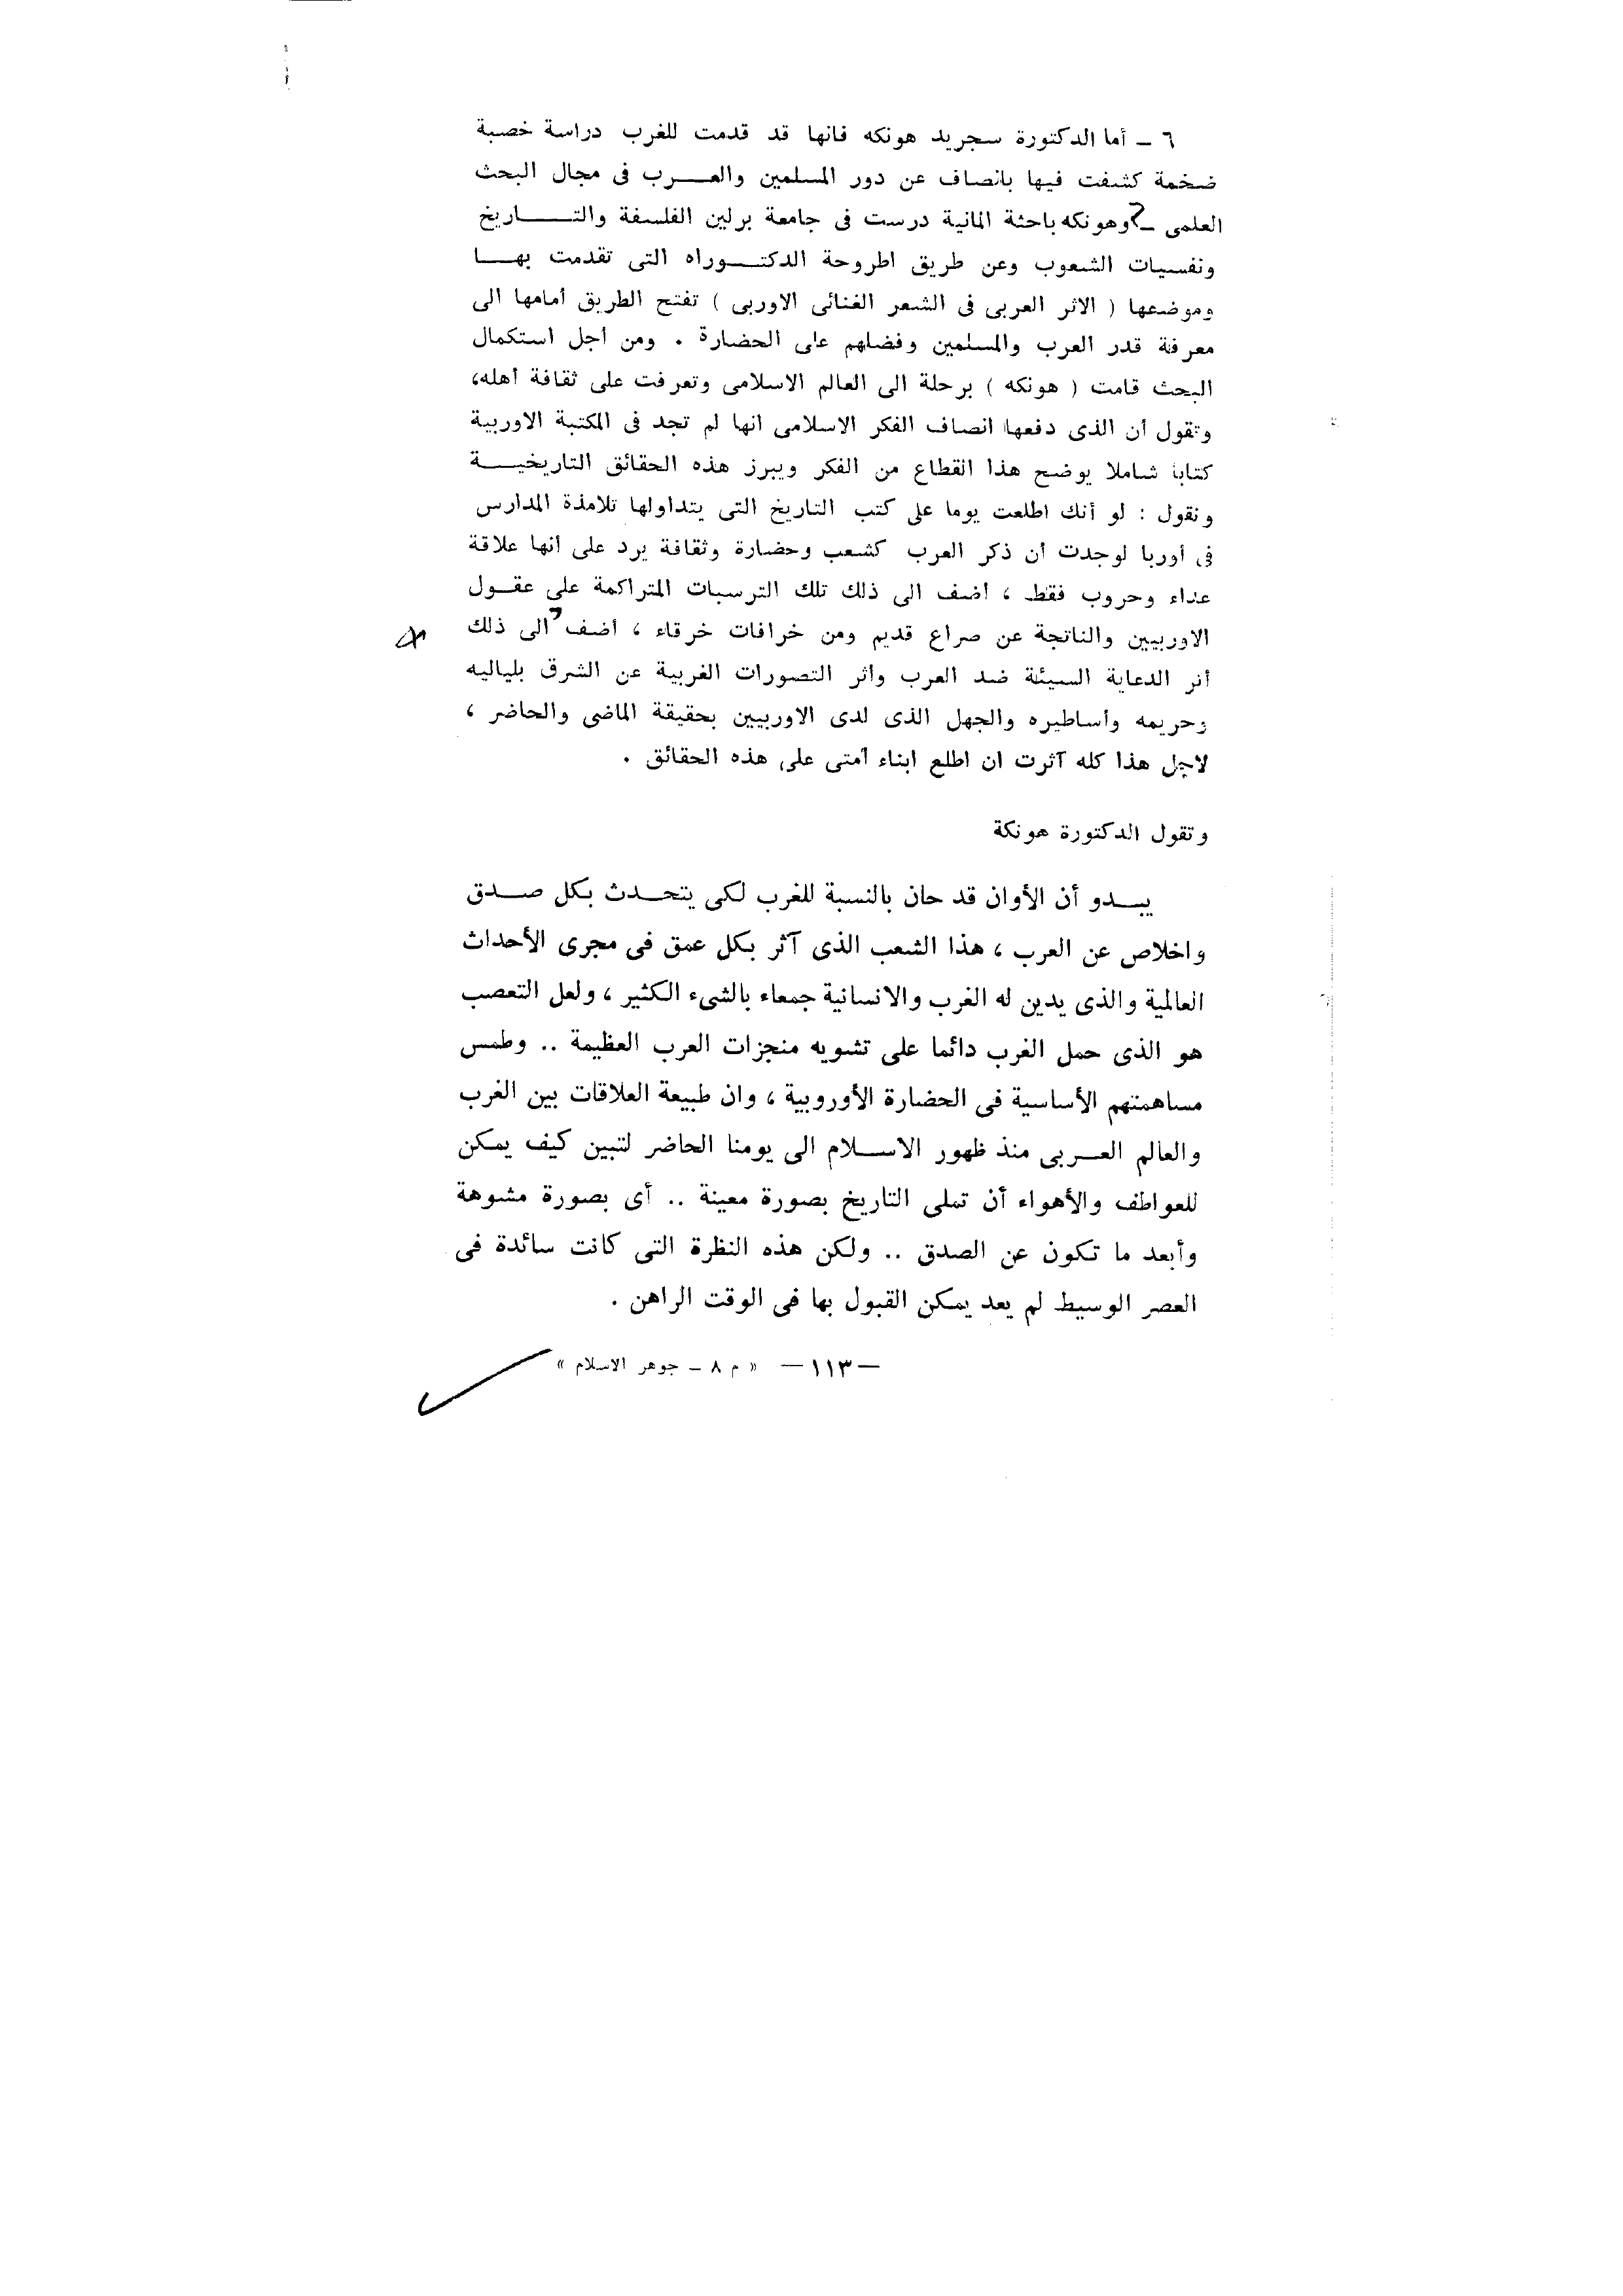 ٦ ــ أما الدكتورة سجريد هونكه فانها قد قدمت للغرب دراسة خصبة
ضخمة كشفت فيها بانصاف عن دور المسلمين والعرب فى مجال البحث
العلمى ــ وهونكه باحثة المانية درست فى جامعة برلين الفلسفة والتاريخ
ونفسيات الشعوب وعن طريق اطروحة الدكتوراه التى تقدمت بها
وموضعها ( الاثر العربى فى الشعر الغنائى الاوربى ) تفتح الطريق أمامها الى
معرفة قدر العرب والمسلمين وفضلهم على الحضارة . ومن أجل استكمال
البحث قامت ( هونكه ) برحلة الى العالم الاسلامى وتعرفت على ثقافة أهله،
وتقول أن الذى دفعها انصاف الفكر الاسلامى انها لم تجد فى المكتبة الاوربية
كتابا شاملا يوضح هذا القطاع من الفكر ويبرز هذه الحقائق التاريخية
وتقول : لو أنك اطلعت يوما على كتب التاريخ التى يتداولها تلامذة المدارس
فى أوربا لوجدت أن ذكر العرب كشعب وحضارة وثقافة يرد على أنها علاقة
عداء وحروب فقط ، أضف الى ذلك تلك الترسبات المتراكمة على عقول
الاوربيين والناتجة عن صراع قديم ومن خرافات خرقاء ، أضف الى ذلك
أثر الدعاية السيئة ضد العرب وأثر التصورات الغربية عن الشرق بلياليه
وحريمه وأساطيره والجهل الذى لدى الاوربيين بحقيقة الماضى والحاضر ،
لاجل هذا كله آثرت ان اطلع ابناء أمتى على هذه الحقائق .
وتقول الدكتورة هونكة
يبدو أن الأوان قد حان بالنسبة للغرب لكى يتحدث بكل صدق
واخلاص عن العرب ، هذا الشعب الذى آثر بكل عمق فى مجرى الأحداث
العالمية والذى يدين له الغرب والانسانية جمعاء بالشىء الكثير ، ولعل التعصب
هو الذى حمل الغرب دائما على تشويه منجزات العرب العظيمة .. وطمس
مساهمتهم الأساسية فى الحضارة الأوروبية ، وان طبيعة العلاقات بين الغرب
والعالم العربى منذ ظهور الاسلام الى يومنا الحاضر لتبين كيف يمكن
للعواطف والأهواء أن تملى التاريخ بصورة معينة .. أى بصورة مشوهة
وأبعد ما تكون عن الصدق .. ولكن هذه النظرة التى كانت سائدة فى
العصر الوسيط لم يعد يمكن القبول بها فى الوقت الراهن .
— ١١٣ — « م ٨ ــ جوهر الاسلام »